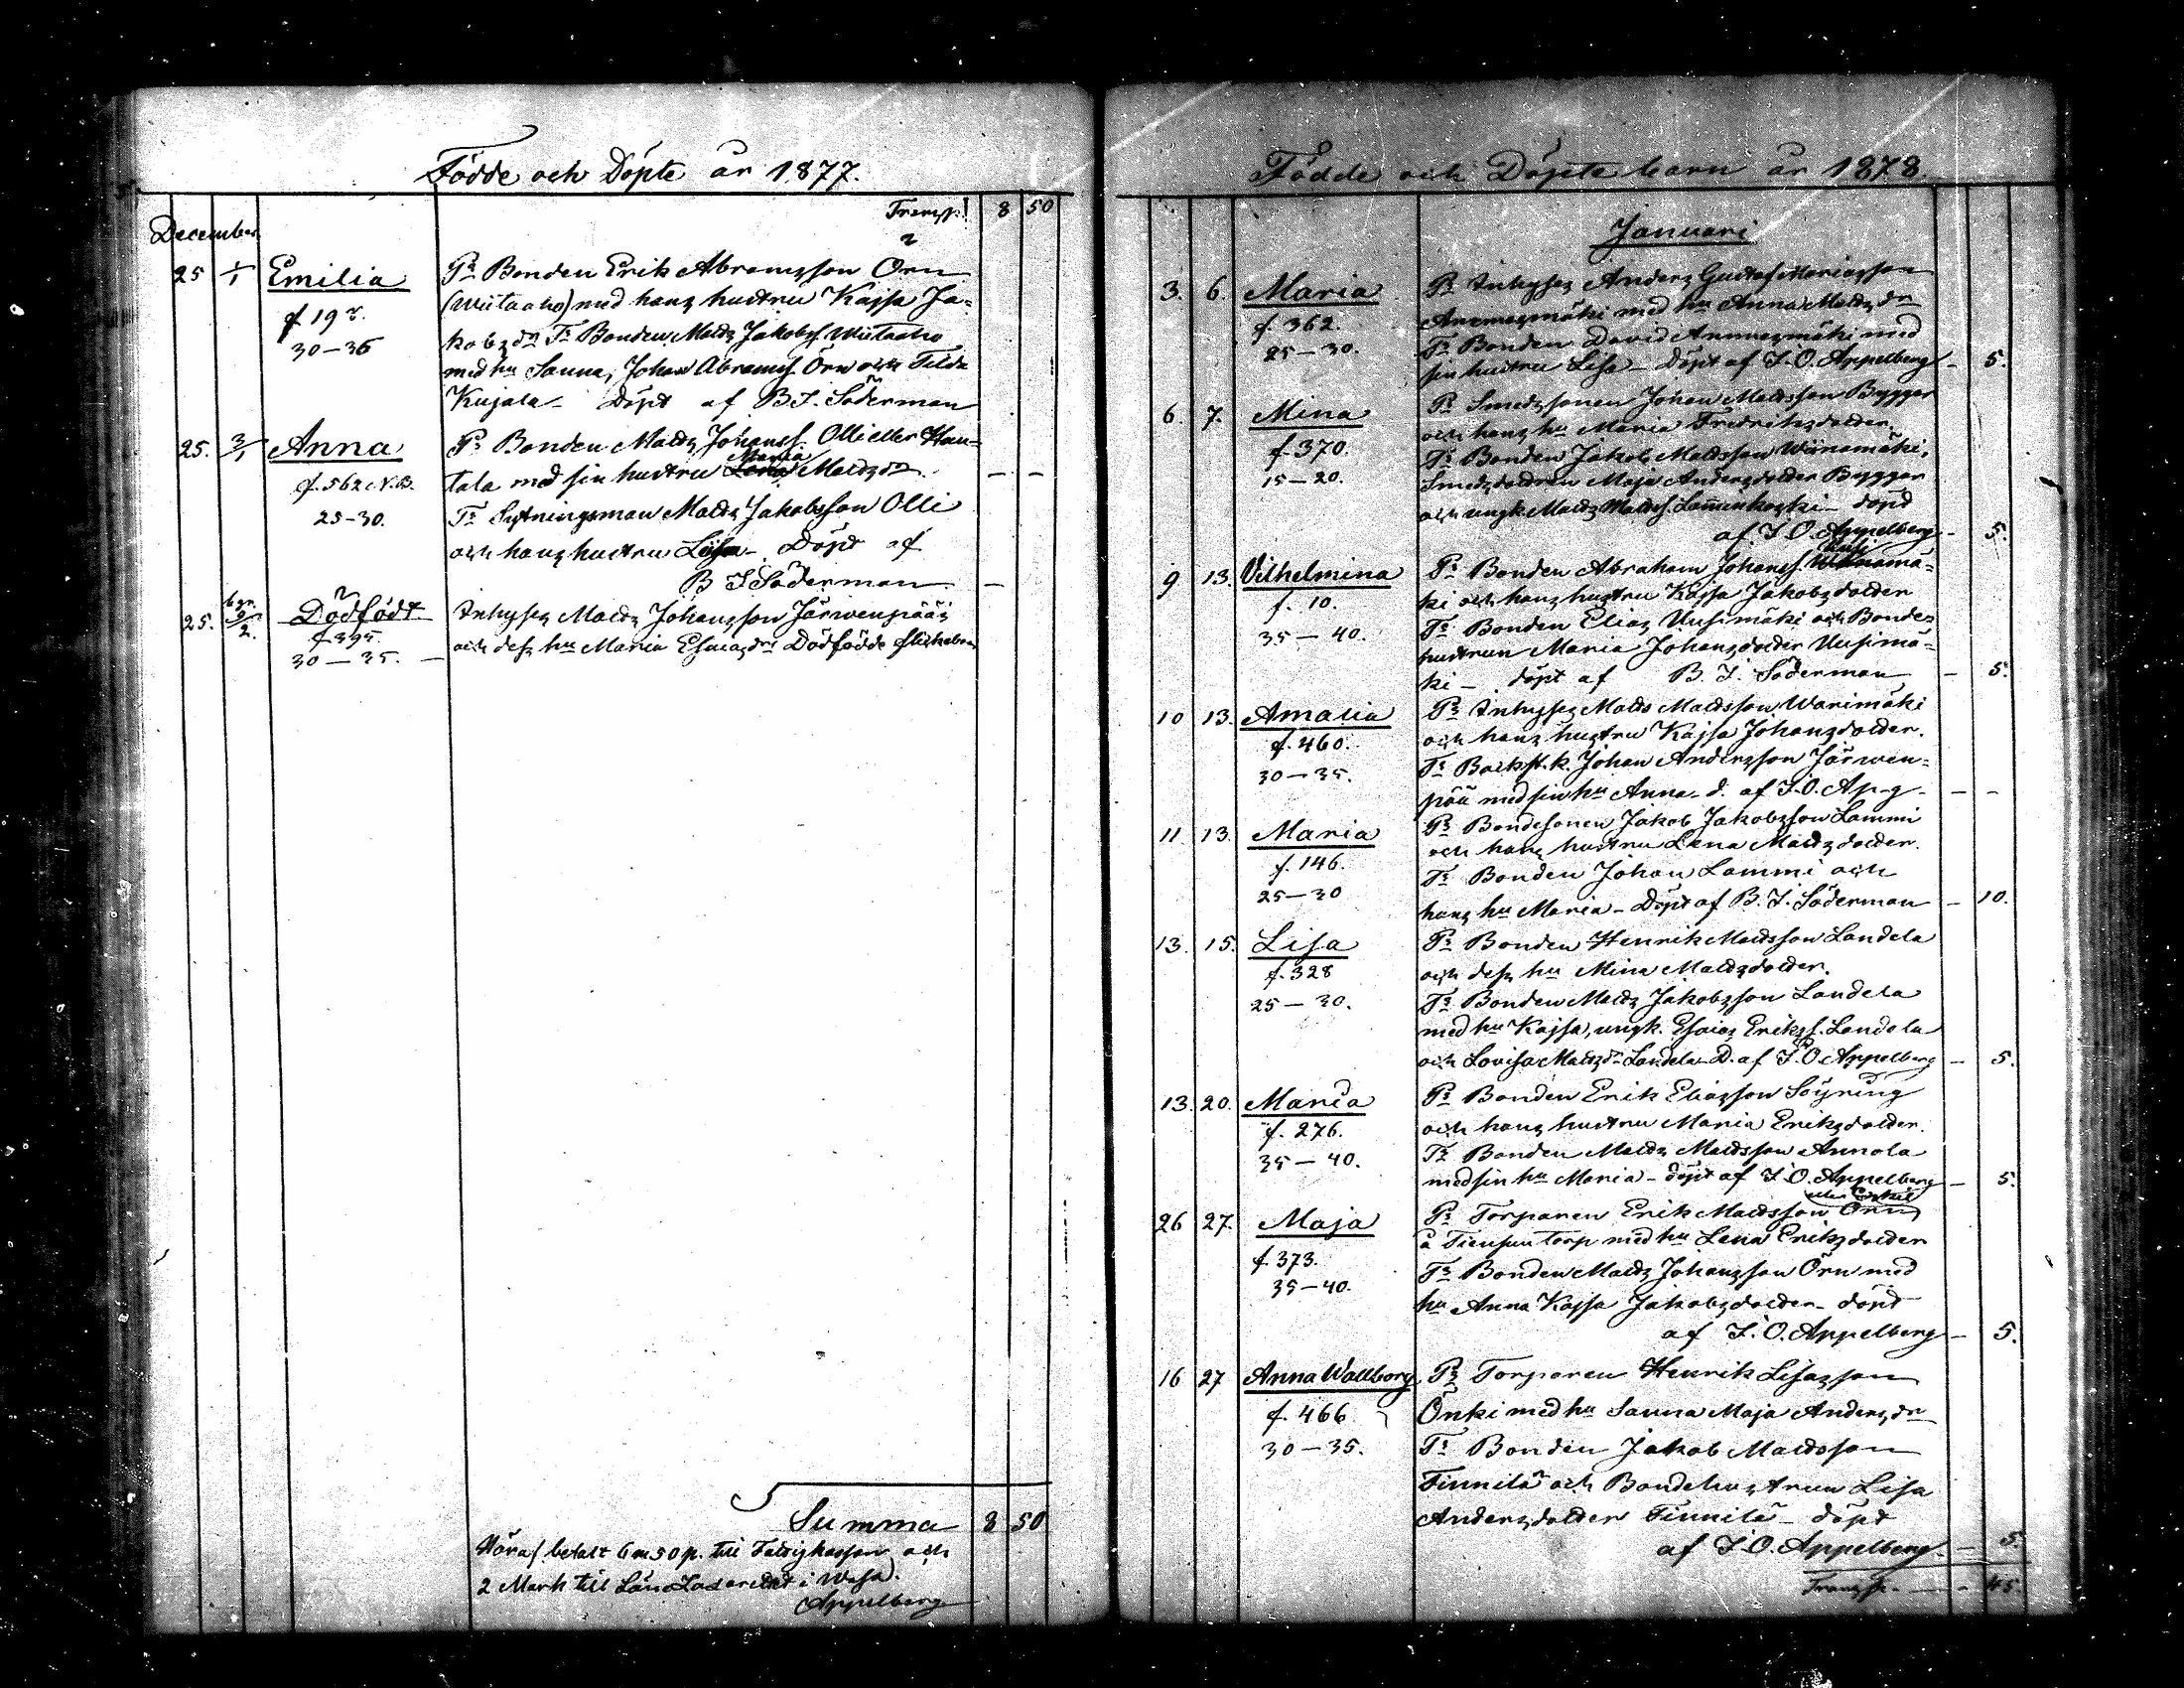 Födde och Döpte år 1877.
Transp! 8 50
December
25 1/1 Emilia Pr Bonden Erik Abramsson Örn
f 192. (Wiitaaho) med hans hustru Kajsa Ja=
30–35 kobsdr Tr Bonden Matts Jakobss. Wiitaaho
med hu Sanna, Johan Abramss. Örn och Tilda
Kujala – Döpt af B.I. Söderman
25. 3/1 Anna Pr Bonden Matts Johanss. Olli eller Hau=
Maria
f. 562 N.B. tala med sin hustru Lena Mattsdr – –
25–30. Tr Sytningsman Matts Jakobsson Olli
och hans hustru Lisa – Döpt af
B I Söderman –
25. bgr. 3/2. Dödfödt Inhyses Matts Johansson Järwenpääs
f 395. och dess hu Maria Esaiasdrs Dödfödde flickebarn
30–35. –
Summa 8 50
Häraf betalt 6 m 50 p. till Fattigkassan och
2 Mark till Läns Lasarettet i Wasa.
Appelberg
Födde och Döpte barn år 1878.
Januari
3. 6. Maria Pr Inhyses Anders Gustaf Mariasson
f. 362. Ammesmäki med hu Anna Mattsdr
25–30. Tr Bonden David Ammesmäki med
sin hustru Lisa – Döpt af I. O. Appelberg – 5.
6. 7. Mina Pr Smedssonen Johan Mattsson Byggar
och hans hu Maria Fredriksdotter.
f. 370. Tr Bonden Jakob Mattsson Wiinamäki,
15–20. Smedsdottren Maja Andersdotter Byggar
och ungk. Matts Mattss. Lamminkoski – döpt
af I O. Appelberg – 5.
9 13. Vilhelmina Pr Bonden Abraham Johanss. Wiinamä=
f. 10. ki och hans hustru Kajsa Jakobsdotter
35–40. Tr Bonden Elias Uusimäki och Bonde=
hustrun Maria Johansdotter Uusimä=
ki – döpt af B. I. Söderman – 5.
10 13. Amalia Pr Inhyses Matts Mattsson Warimäki
f. 460. och hans hustru Kajsa Johansdotter.
30–35. Tr Backst.k. Johan Andersson Järwen=
pää med sin hu Anna – d. af I.O. Ap-g – – –
11. 13. Maria Pr Bondesonen Jakob Jakobsson Lammi
och hans hustru Lena Mattsdotter.
f. 146. Tr Bonden Johan Lammi och
25–30 hans hu Maria – Döpt af B. I. Söderman – 10.
13. 15. Lisa Pr Bonden Henrik Mattsson Landela
f. 328 och dess hu Mina Mattsdotter.
25–30. Tr Bonden Matts Jakobsson Landela
med hu Kajsa, ungk. Esaias Erikss. Landela
och Lovisa Mattsdr Landela – D. af I. O. Appelberg – 5.
13. 20. Maria Pr Bonden Erik Eliasson Söyring
f. 276. och hans hustru Maria Eriksdotter.
35–40. Tr Bonden Matts Mattsson Annola
med sin hu Maria – döpt af I. O. Appelberg – 5.
26 27. Maja Pr Torparen Erik Mattsson Örn
å Tiensuu torp med hu Lena Eriksdotter
f. 373. Tr Bonden Matts Johansson Örn med
35–40. hu Anna Kajsa Jakobsdotter – döpt
af I. O. Appelberg – 5.
16 27 Anna Wallborg Pr Torparen Henrik Lisasson
f. 466 Önki med hu Sanna Maja Andersdr
30–35. Tr Bonden Jakob Mattsson
Finnilä och Bondehustrun Lisa
Andersdotter Finnilä – döpt
af I. O. Appelberg – 5.
Transp. – – 45.